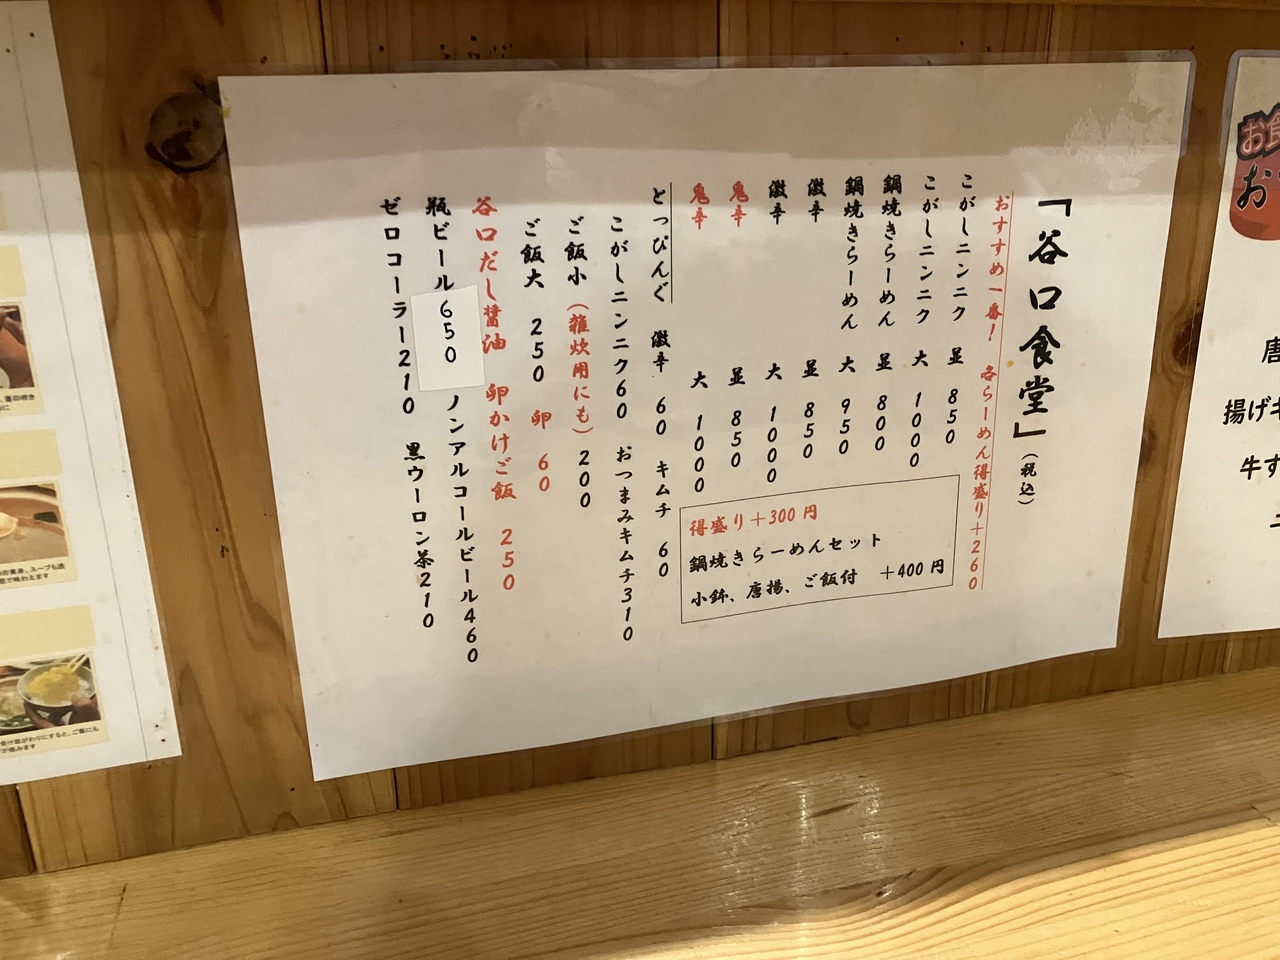 「谷口食堂」（税込）
おすすめ一番！ 各らーめん得盛り＋260
こがしニンニク 並 850
こがしニンニク 大 1000
鍋焼きらーめん 並 800
鍋焼きらーめん 大 950
激辛 並 850
激辛 大 1000
鬼辛 並 850
鬼辛 大 1000
得盛り＋300円
鍋焼きらーめんセット
小鉢、唐揚、ご飯付 ＋400円
とっぴんぐ 激辛 60 キムチ 60
こがしニンニク60 おつまみキムチ310
ご飯小（雑炊用にも）200
ご飯大 250 卵 60
谷口だし醤油 卵かけご飯 250
瓶ビール650 ノンアルコールビール460
ゼロコーラー210 黒ウーロン茶210
お食
お
唐
揚げギ
牛す